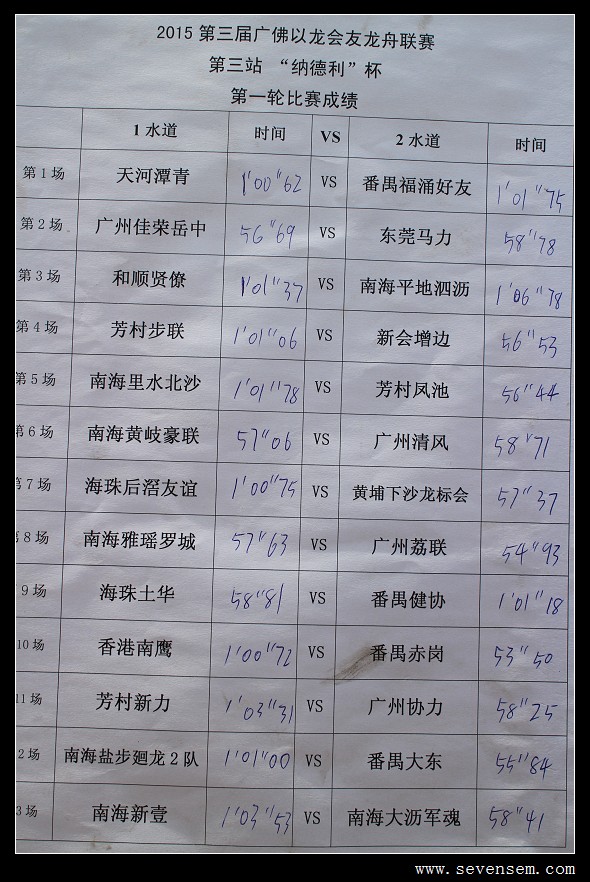 2015 第三届广佛以龙会友龙舟联赛
第三站 “纳德利”杯
第一轮比赛成绩
1 水道 时间 VS 2 水道 时间
第 1 场 天河潭青 1'00"62 VS 番禺福涌好友 1'01"75
第 2 场 广州佳荣岳中 56"69 VS 东莞马力 58"78
第 3 场 和顺贤僚 1'01"37 VS 南海平地泗沥 1'06"78
第 4 场 芳村步联 1'01"06 VS 新会增边 56"53
第 5 场 南海里水北沙 1'01"78 VS 芳村凤池 56"44
第 6 场 南海黄岐豪联 57"06 VS 广州清风 58"71
第 7 场 海珠后滘友谊 1'00"75 VS 黄埔下沙龙标会 57"37
8 场 南海雅瑶罗城 57"63 VS 广州荔联 54"93
9 场 海珠土华 58"81 VS 番禺健协 1'01"18
10 场 香港南鹰 1'00"72 VS 番禺赤岗 53"50
11 场 芳村新力 1'03"31 VS 广州协力 58"25
2 场 南海盐步廻龙 2 队 1'01"00 VS 番禺大东 55"84
3 场 南海新壹 1'03"53 VS 南海大沥军魂 58"41
www.sevensem.com